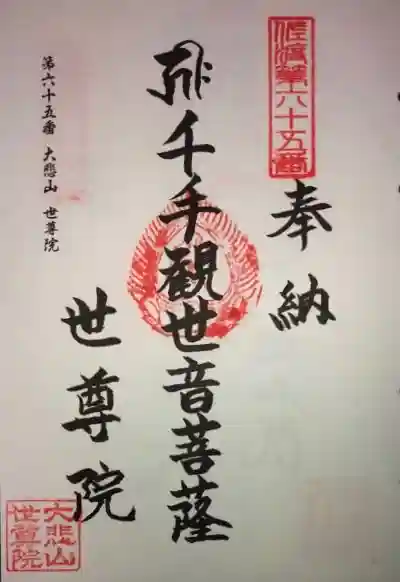 佐渡第六十五番
奉納
千手観世音菩薩
世尊院
第六十五番 大悲山 世尊院
大悲山
世尊院